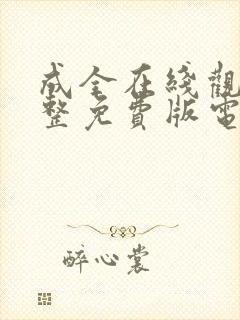 成全在綫觀
整免費版電
醉心裳